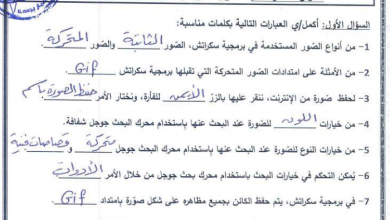 السؤال الأول: أكمل/ي العبارات التالية بكلمات مناسبة:
1- من أنواع الصّور المستخدمة في برمجية سكراتش، الصّور الثابتة والصّور المتحركة
2- من الأمثلة على امتدادات الصّور المتحركة التي تقبلها برمجية سكراتش Gif.
3- لحفظ صورة من الإنترنت، ننقر عليها بالزر الأيمن للفأرة، ونختار الأمر حفظ الصورة باسم
4- من خيارات اللون للصّورة عند البحث عنها باستخدام محرك البحث جوجل شفافة.
5- من خيارات النوع للصّورة عند البحث عنها بإستخدام محرك البحث جوجل متحركة و قصاصات فنية
6- يُمكن التحكم في خيارات البحث باستخدام محرك بحث جوجل من خلال الأمر الأدوات
7- في برمجية سكراتش، يتم حفظ الكائن بجميع مظاهره على شكل صّورة بامتداد Gif.